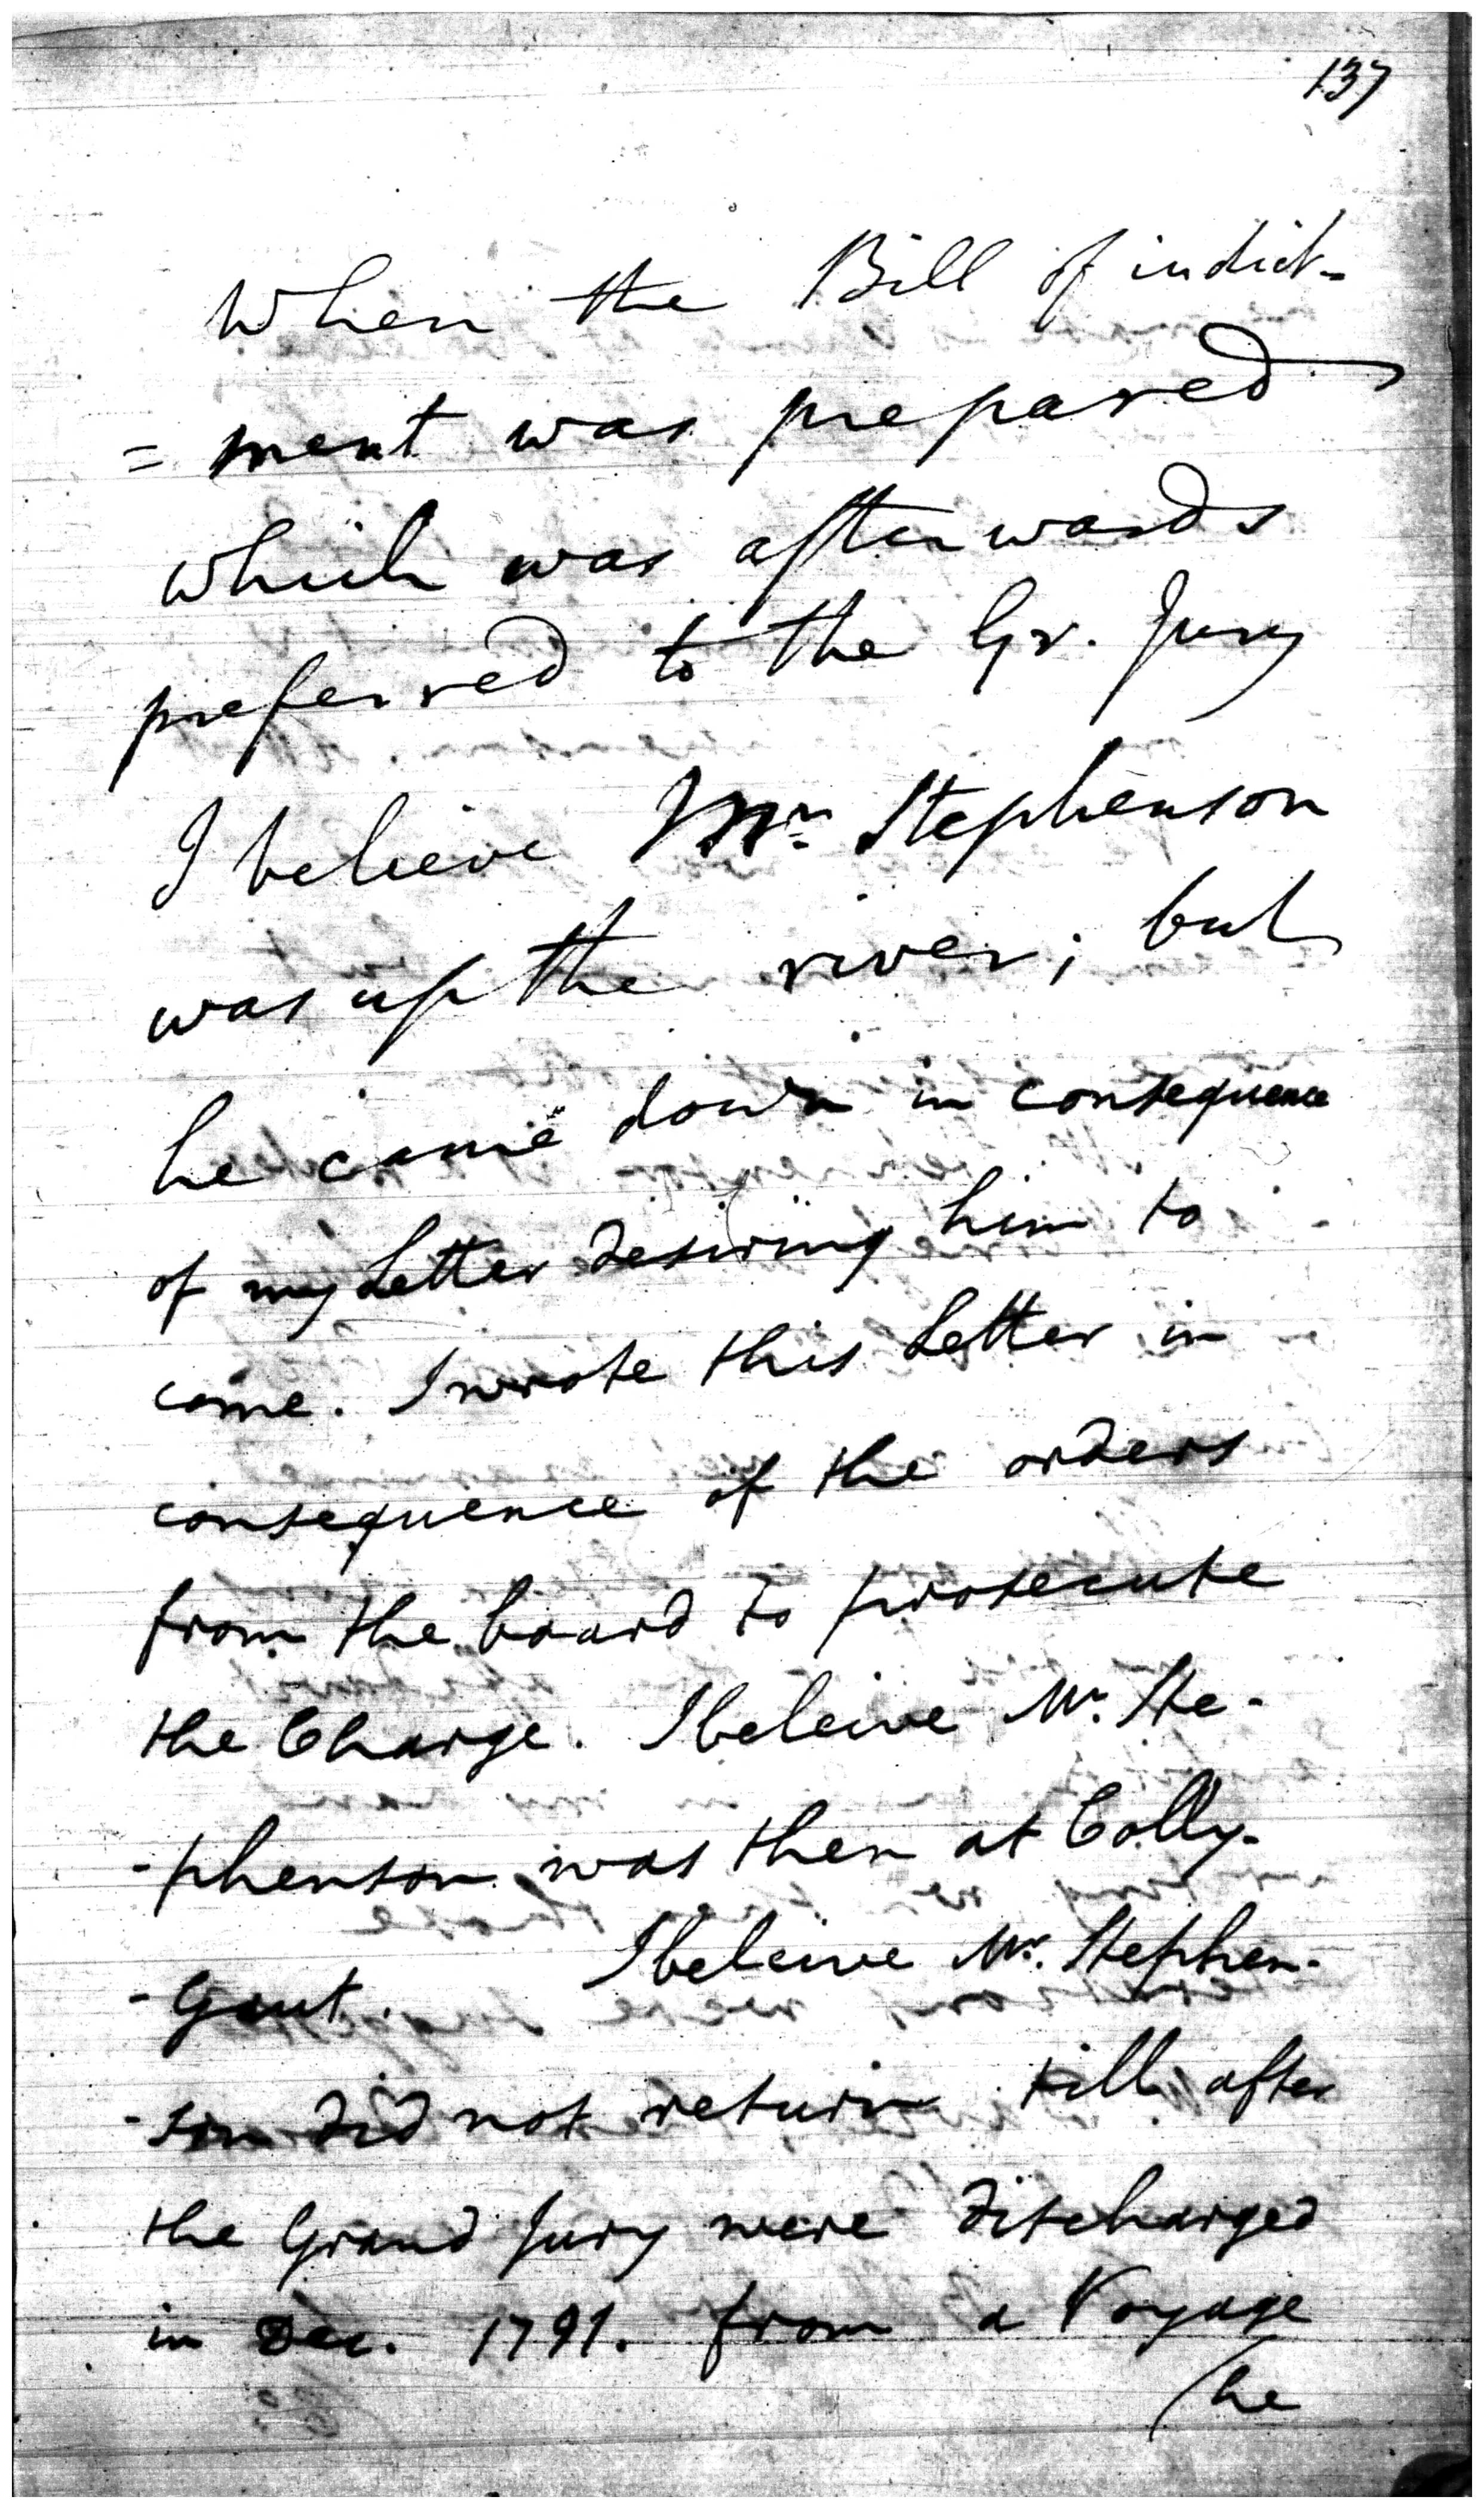 137
When the Bill of indict=
=ment was prepared
which was afterwards
preferred to the Gr. Jury
I believe Mr. Stephenson
was up the river; but
he came down in consequence
of my Letter desiring him to
come. I wrote this Letter in
consequence of the orders
from the board to prosecute
the Charge. I beleive Mr. Ste-
-phenson was then at Colly-
-Gaut. I beleive Mr. Stephen-
-son did not return till after
the Grand Jury were discharged
in Dec. 1791. from a Voyage
(he